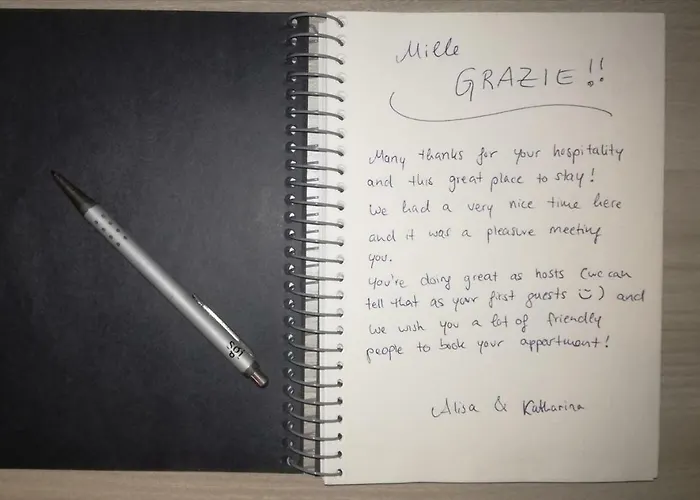 Mille
GRAZIE!!
Many thanks for your hospitality
and this great place to stay!
We had a very nice time here
and it was a pleasure meeting
you.
You're doing great as hosts (we can
tell that as your first guests ☺) and
we wish you a lot of friendly
people to book your appartment!
Alisa & Katharina